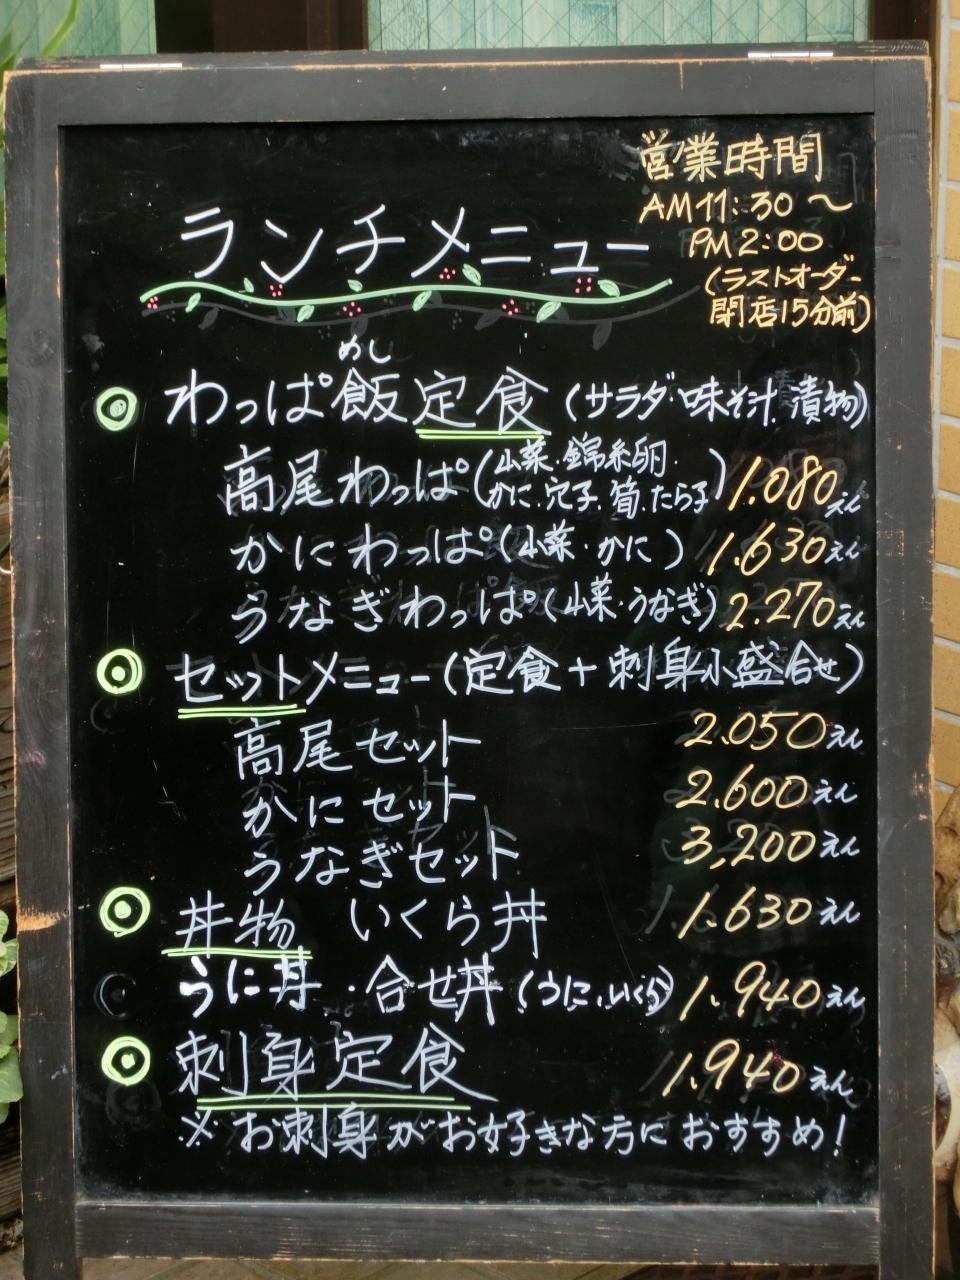 営業時間
AM11:30〜
PM2:00
(ラストオーダー
閉店15分前)
ランチメニュー
めし
わっぱ飯定食(サラダ・味そ汁・漬物)
高尾わっぱ(山菜・錦糸卵・かに・穴子・筍・たら子) 1.080えん
かにわっぱ(山菜・かに) 1.630えん
うなぎわっぱ(山菜・うなぎ) 2.270えん
セットメニュー(定食+刺身小盛合せ)
高尾セット 2.050えん
かにセット 2.600えん
うなぎセット 3,200えん
丼物 いくら丼 1.630えん
うに丼・合せ丼(うに、いくら) 1.940えん
刺身定食 1.940えん
※お刺身がお好きな方におすすめ!